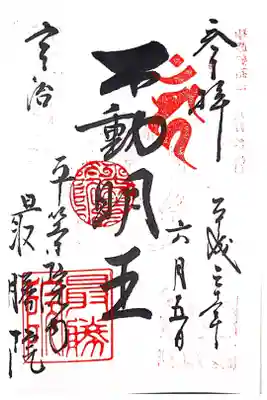 奉拝
平成三十年
六月五日
不動明王
宇治
平等院内
最勝院
最勝